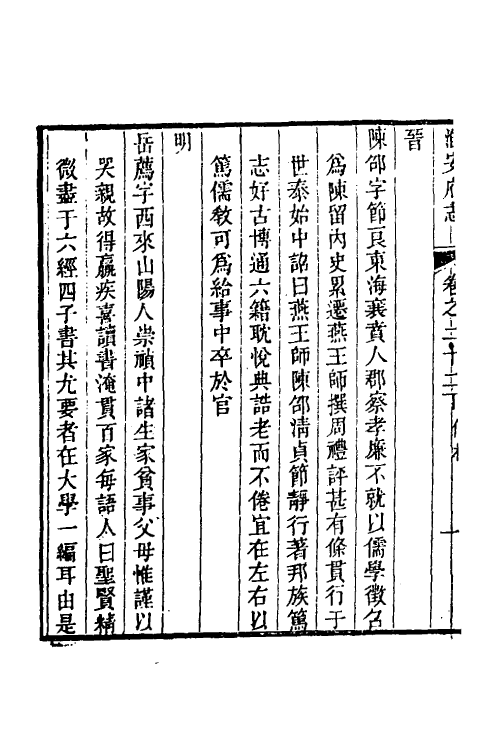 淮安府志
卷之二十二
晉
陳邵字節良東海襄賁人郡察孝廉不就以儒學徵召
爲陳留內史累遷燕王師撰周禮評甚有條貫行于
世泰始中詔曰燕王師陳邵清貞節靜行著邦族篤
志好古博通六籍耽悅典誥老而不倦宜在左右以
篤儒敎可爲給事中卒於官
明
岳薦字西來山陽人崇禎中諸生家貧事父母惟謹以
哭親故得羸疾喜讀書淹貫百家每語人曰聖賢精
微盡于六經四子書其尤要者在大學一編耳由是